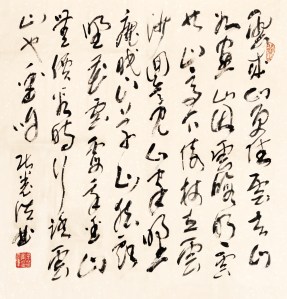 雲來山更佳雲去山
如畫山因雲晦明雲
共山高下倚杖立雲
沙回首見山家野
鹿眠山草山猿戲
野花雲霞我愛山
無價看時行踏雲
山也愛咱 張養浩